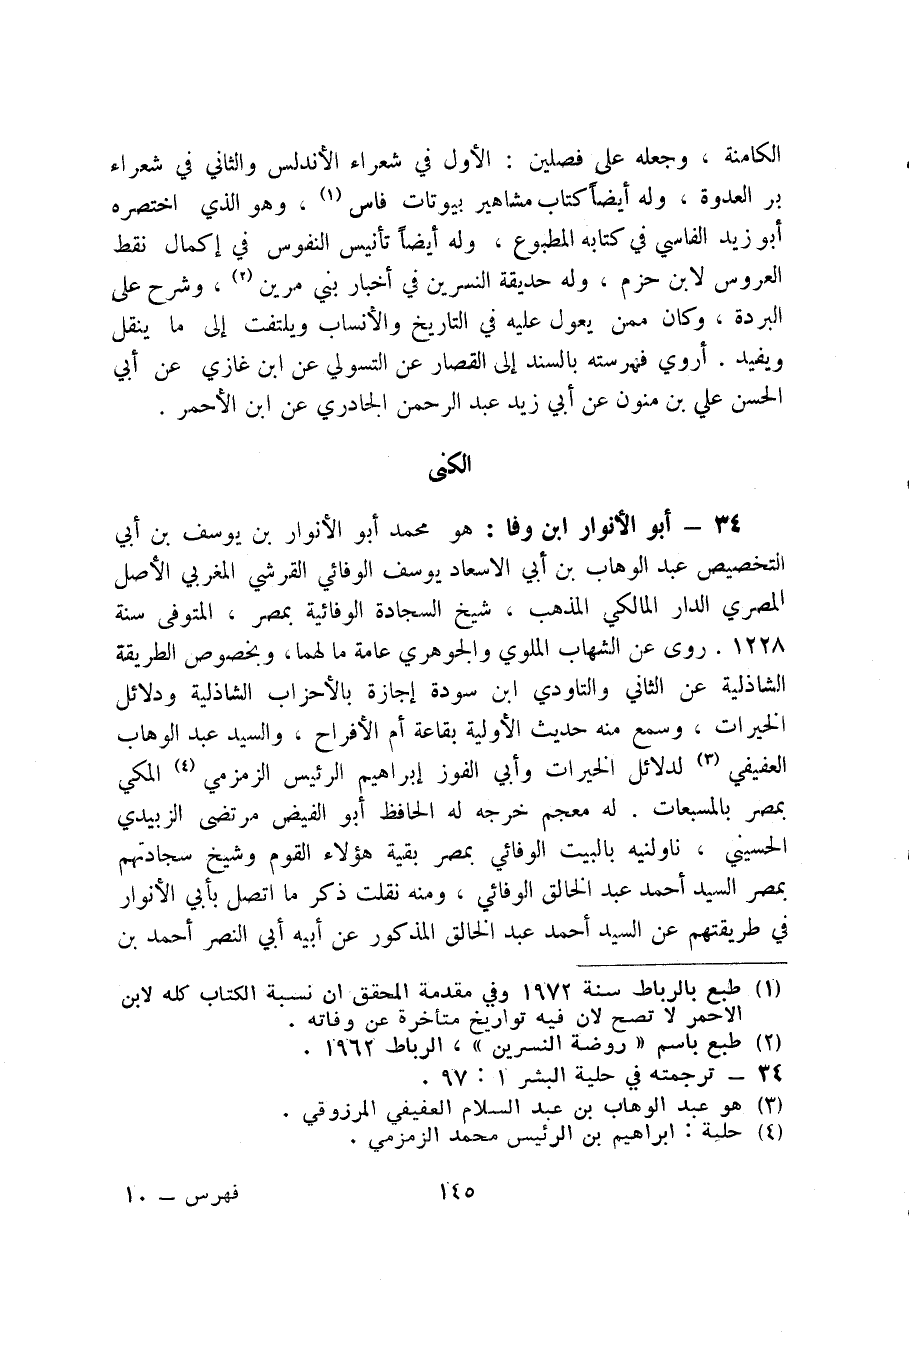 الكامنة ، وجعله على فصلين : الأول في شعراء الأندلس والثاني في شعراء
بر العدوة ، وله أيضاً كتاب مشاهير بيوتات فاس (١) ، وهو الذي اختصره
أبو زيد الفاسي في كتابه المطبوع ، وله أيضاً تأنيس النفوس في إكمال نقط
العروس لابن حزم ، وله حديقة النسرين في أخبار بني مرين (٢) ، وشرح على
البردة ، وكان ممن يعول عليه في التاريخ والأنساب ويلتفت إلى ما ينقل
ويفيد . أروي فهرسته بالسند إلى القصار عن التسولي عن ابن غازي عن أبي
الحسن علي بن منون عن أبي زيد عبد الرحمن الجادري عن ابن الأحمر .
الكنى
٣٤ – أبو الأنوار ابن وفا : هو محمد أبو الأنوار بن يوسف بن أبي
التخصيص عبد الوهاب بن أبي الاسعاد يوسف الوفائي القرشي المغربي الأصل
المصري الدار المالكي المذهب ، شيخ السجادة الوفائية بمصر ، المتوفى سنة
١٢٢٨ . روى عن الشهاب الملوي والجوهري عامة ما لهما، وبخصوص الطريقة
الشاذلية عن الثاني والتاودي ابن سودة إجازة بالأحزاب الشاذلية ودلائل
الخيرات ، وسمع منه حديث الأولية بقاعة أم الأفراح ، والسيد عبد الوهاب
العفيفي (٣) لدلائل الخيرات وأبي الفوز إبراهيم الرئيس الزمزمي (٤) المكي
بمصر بالمسبعات . له معجم خرجه له الحافظ أبو الفيض مرتضى الزبيدي
الحسيني ، ناولنيه بالبيت الوفائي بمصر بقية هؤلاء القوم وشيخ سجادتهم
بمصر السيد أحمد عبد الخالق الوفائي ، ومنه نقلت ذكر ما اتصل بأبي الأنوار
في طريقتهم عن السيد أحمد عبد الخالق المذكور عن أبيه أبي النصر أحمد بن
(١) طبع بالرباط سنة ١٩٧٢ وفي مقدمة المحقق ان نسبة الكتاب كله لابن
الاحمر لا تصح لان فيه تواريخ متأخرة عن وفاته .
(٢) طبع باسم « روضة النسرين » ، الرباط ١٩٦٢ .
٣٤ – ترجمته في حلية البشر ١ : ٩٧ .
(٣) هو عبد الوهاب بن عبد السلام العفيفي المرزوقي .
(٤) حلية : ابراهيم بن الرئيس محمد الزمزمي .
١٤٥
فهرس – ١٠